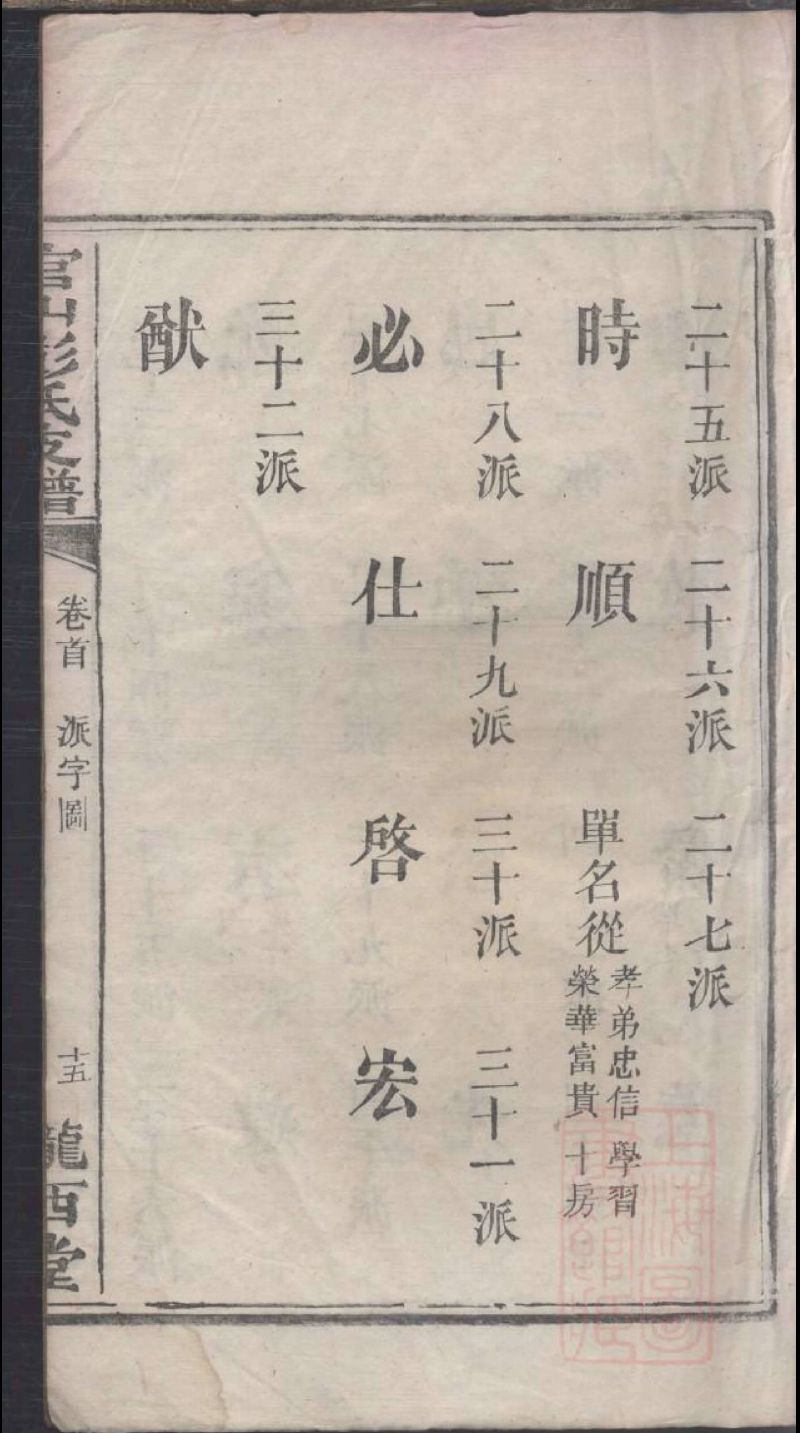 二十五派 二十六派 二十七派
時 順 單名從 孝弟忠信 學習
榮華富貴 十房
二十八派 二十九派 三十派 三十一派
必 仕 啓 宏
三十二派
猷
官山彭氏支譜
卷首 派字圖
十五
龍西堂
上海圖書館藏